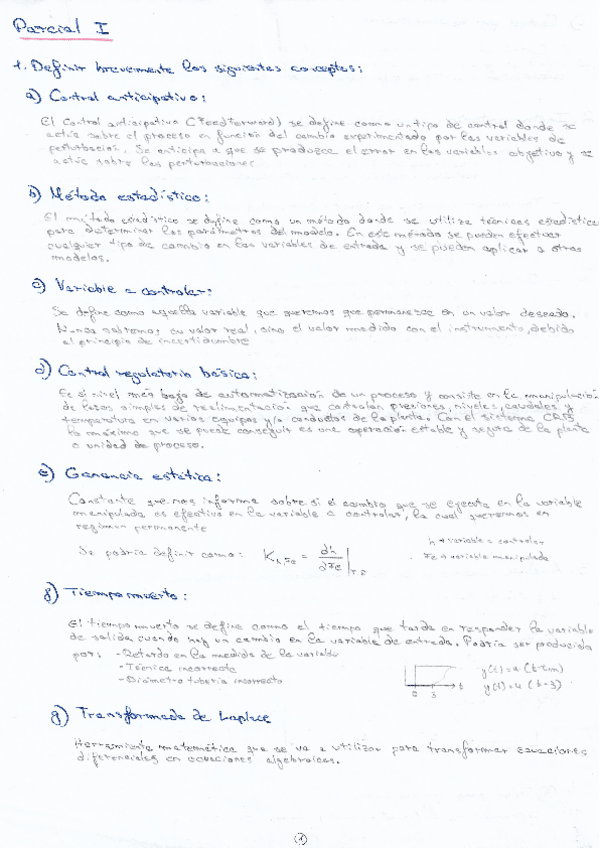 Parcial I
1. Definir brevemente los siguientes conceptos:
a) Control anticipativo:
El Control anticipativo (Feedforward) se define como un tipo de control donde se
actúa sobre el proceso en función del cambio experimentado por las variables de
perturbación. Se anticipa a que se produzca el error en las variables objetivo y se
actúa sobre las perturbaciones
b) Método estadístico:
El método estadístico se define como un método donde se utiliza técnicas estadísticas
para determinar los parámetros del modelo. En este método se pueden efectuar
cualquier tipo de cambio en las variables de entrada y se pueden aplicar a otros
modelos.
c) Variable a controlar:
Se define como aquella variable que queremos que permanezca en un valor deseado.
Nunca sabremos su valor real, sino el valor medido con el instrumento, debido
al principio de incertidumbre
d) Control regulatorio básico:
Es el nivel más bajo de automatización de un proceso y consiste en la manipulación
de lazos simples de realimentación que controlan presiones, niveles, caudales y
temperatura en varios equipos y/o conductos de la planta. Con el sistema CRB
lo máximo que se puede conseguir es una operación estable y segura de la planta
o unidad de proceso.
e) Ganancia estática:
Constante que nos informa sobre si el cambio que se ejecuta en la variable
manipulada es efectivo en la variable a controlar, la cual queremos en
régimen permanente
Se podría definir como: K h,Fe = dh / dFe
h → variable a controlar
Fe → variable manipulada
f) Tiempo muerto:
El tiempo muerto se define como el tiempo que tarda en responder la variable
de salida cuando hay un cambio en la variable de entrada. Podría ser producida
por: - Retardo en la medida de la variable
- Técnica incorrecta
- Diámetro tubería incorrecto
0 3 t
y(t) = u (t-tm)
y(t) = u (t-3)
g) Transformada de Laplace
Herramienta matemática que se va a utilizar para transformar ecuaciones
diferenciales en ecuaciones algebraicas.
1